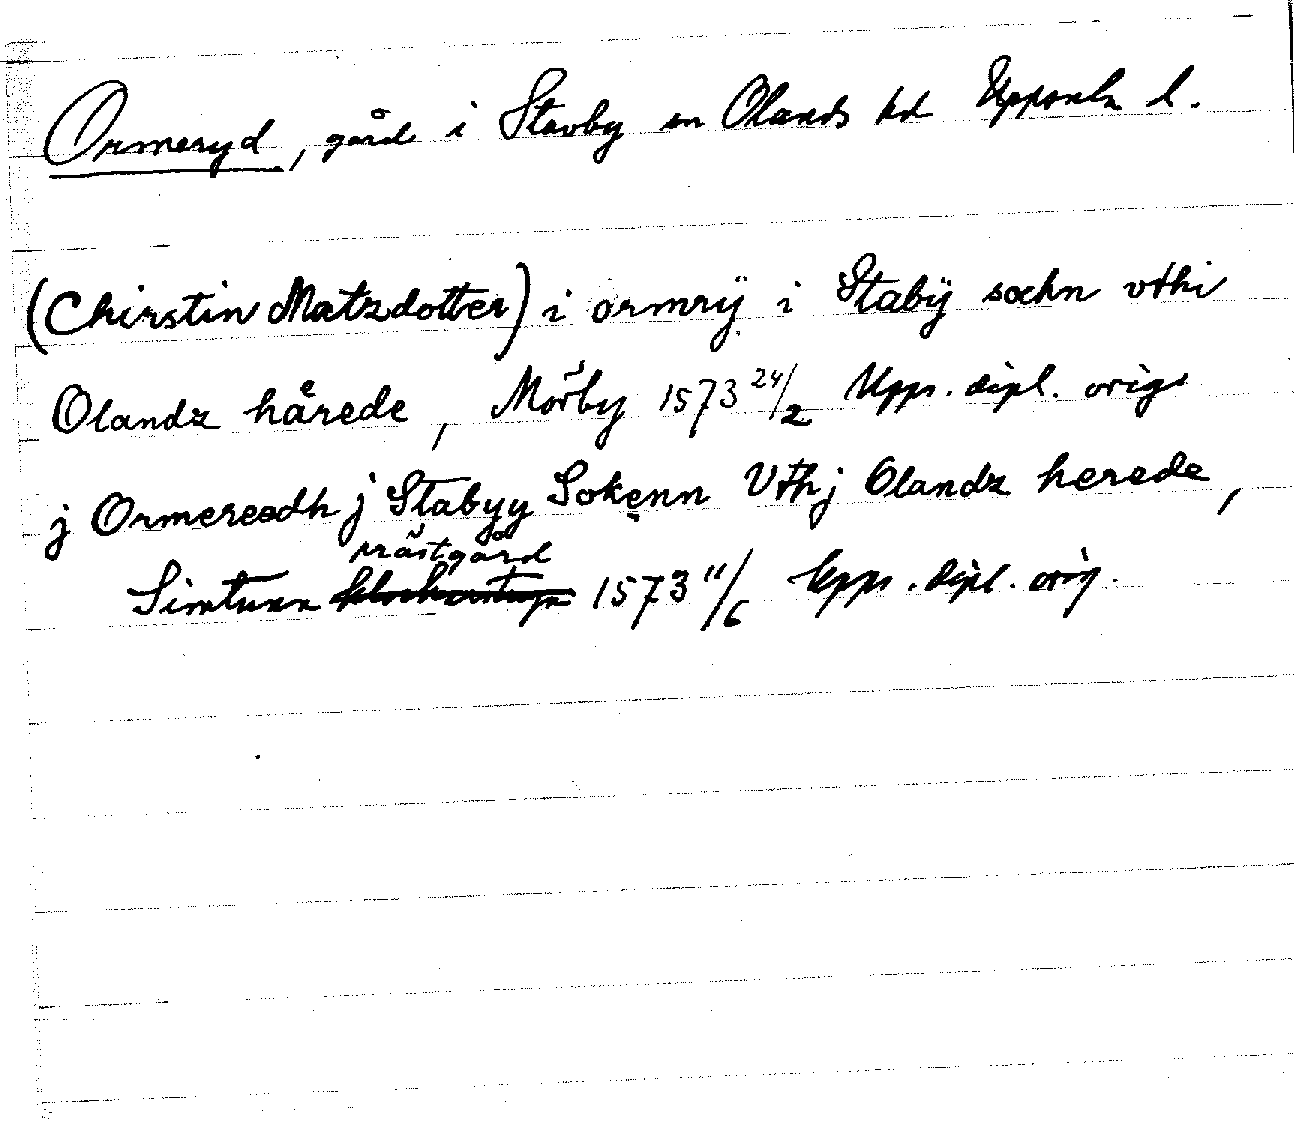 Ormeryd, gård i Stavby sn Olands hd Uppsala l.
(Chirstin Matzdotter) i ormrÿ i Stabÿ sochn vthi
Olandz hårede, Mörby 1573 24/2 Upps. dipl. orig
j Ormereodh j Stabyy Sokenn Vthj Olandz herede,
prästgård
Simtuna 1573 11/6 Upps. dipl. orig.